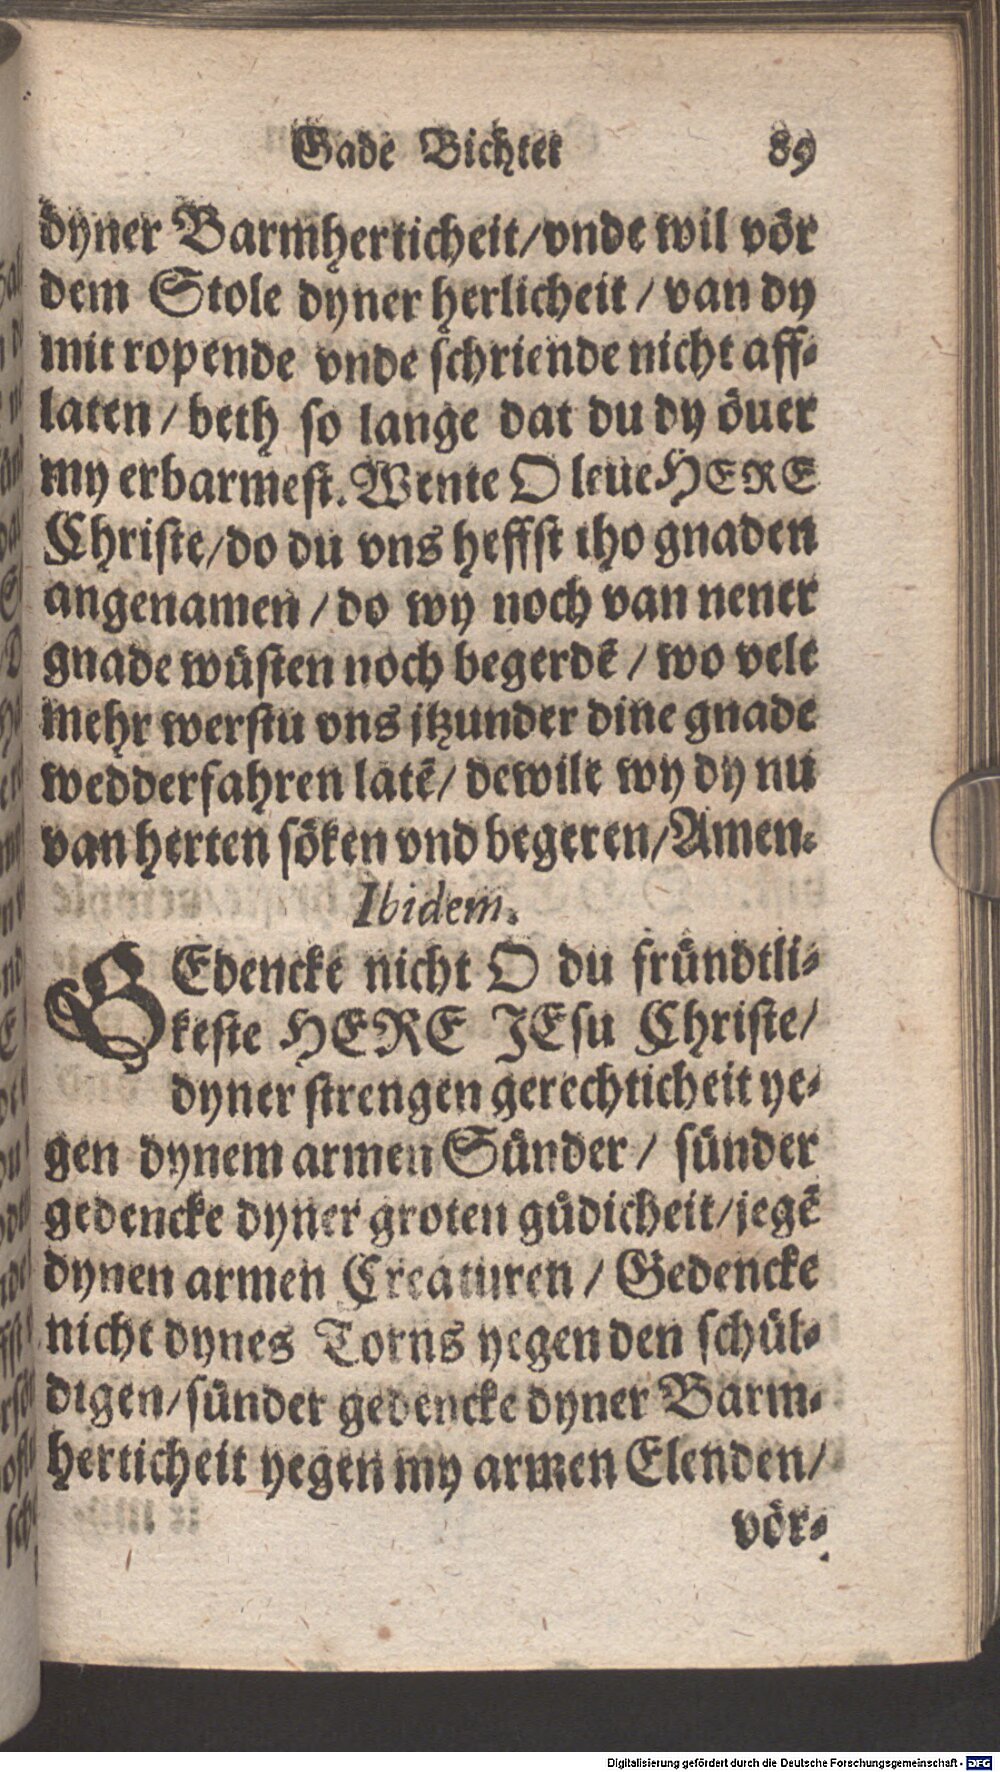 Gade Bichtet 89
dyner Barmherticheit/vnde wil vör
dem Stole dyner herlicheit / van dy
mit ropende vnde schriende nicht aff⸗
laten / beth so lange dat du dy öuer
my erbarmest. Wente O leue HERE
Christe/do du vns heffst tho gnaden
angenamen / do wy noch van nener
gnade wüsten noch begerdē / wo vele
mehr werstu vns itzunder dine gnade
wedderfahren latē/ dewile wy dy nu
van herten söken vnd begeren/Amen.
Ibidem.
GEdencke nicht O du fründtli⸗
keste HERE JEsu Christe/
dyner strengen gerechticheit ye⸗
gen dynem armen Sünder / sünder
gedencke dyner groten gůdicheit/jegē
dynen armen Creaturen / Gedencke
nicht dynes Torns yegen den schül⸗
digen/sünder gedencke dyner Barm⸗
herticheit yegen my armen Elenden/
vör⸗
Digitalisierung gefördert durch die Deutsche Forschungsgemeinschaft - DFG